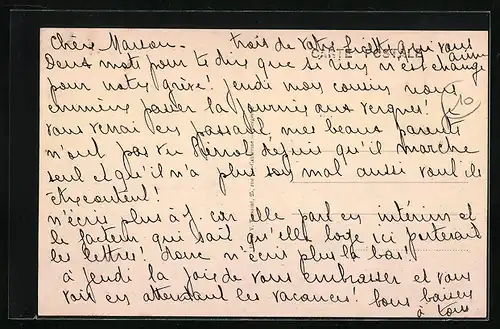 Chère Marson. trois de votre Ginette qui vous aime
CARTE POSTALE
Deux mots pour te dire que si rien n'est changé
pour notre grève! Jeudi mon cousin nous
emmène passer la journée aux vergnes! Je
vous verrai en passant, mes beaux parents
n'ont pas vu depuis qu'il marche
seul et qu'il n'a plus son mal aussi vont ils
être content!
n'écris plus à J. car elle part en intérim et
le facteur qui sait qu'elle loge ici porterait
les lettres! donc n'écris plus là bas!
à jeudi la joie de vous embrasser et vous
voir en attendant les vacances! bons baisers
à tous
10